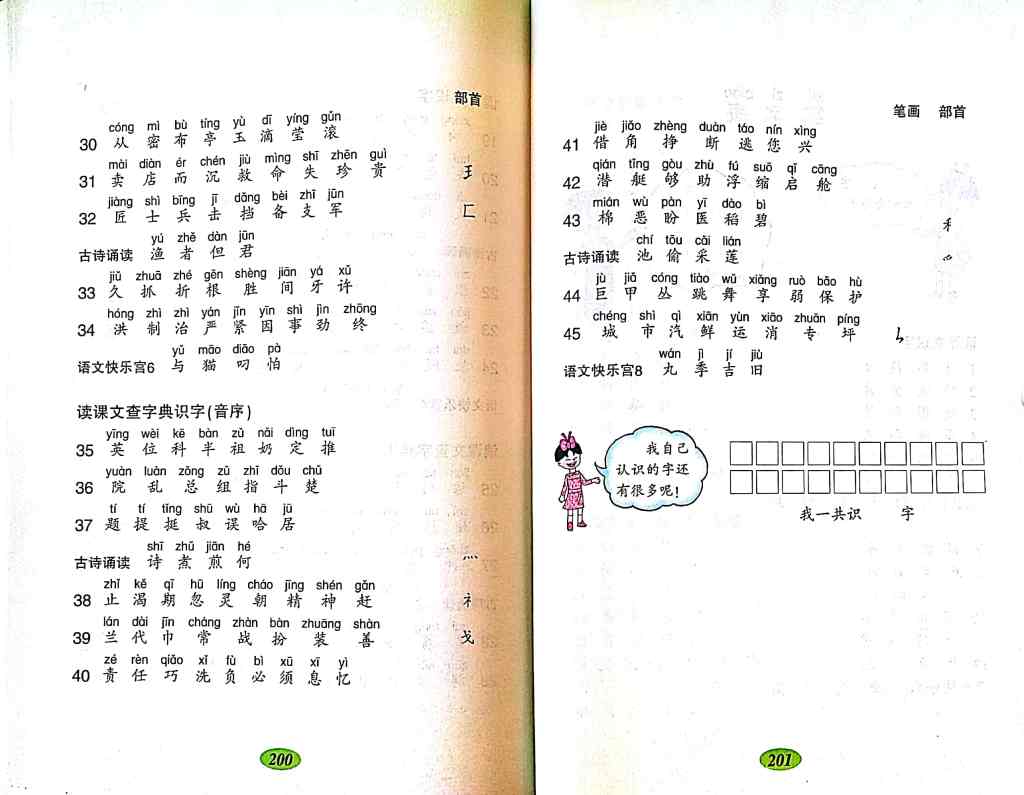 部首
cóng mì bù tíng yù dī yíng gǔn
30 从 密 布 亭 玉 滴 莹 滚
mài diàn ér chén jiù mìng shī zhēn guì
31 卖 店 而 沉 救 命 失 珍 贵 王
jiàng shì bīng jī dǎng bèi zhī jūn
32 匠 士 兵 击 挡 备 支 军 匚
yú zhě dàn jūn
古诗诵读 渔 者 但 君
jiǔ zhuā zhé gēn shèng jiān yá xǔ
33 久 抓 折 根 胜 间 牙 许
hóng zhì zhì yán jǐn yīn shì jìn zhōng
34 洪 制 治 严 紧 因 事 劲 终
yǔ māo diāo pà
语文快乐宫6 与 猫 叼 怕
读课文查字典识字(音序)
yīng wèi kē bàn zǔ nǎi dìng tuī
35 英 位 科 半 祖 奶 定 推
yuàn luàn zǒng zǔ zhǐ dǒu chǔ
36 院 乱 总 组 指 斗 楚
tí tí tǐng shū wù hā jū
37 题 提 挺 叔 误 哈 居
shī zhǔ jiān hé
古诗诵读 诗 煮 煎 何 灬
zhǐ kě qī hū líng cháo jīng shén gǎn
38 止 渴 期 忽 灵 朝 精 神 赶 礻
lán dài jīn cháng zhàn bàn zhuāng shàn
39 兰 代 巾 常 战 扮 装 善 戈
zé rèn qiǎo xǐ fù bì xū xī yì
40 责 任 巧 洗 负 必 须 息 忆
200
笔画 部首
jiè jiǎo zhèng duàn táo nín xìng
41 借 角 挣 断 逃 您 兴
qián tǐng gòu zhù fú suō qǐ cāng
42 潜 艇 够 助 浮 缩 启 舱
mián wù pàn yī dào bì
43 棉 恶 盼 医 稻 碧
chí tōu cǎi lián
古诗诵读 池 偷 采 莲 爫
jù jiǎ cóng tiào wǔ xiǎng ruò bǎo hù
44 巨 甲 丛 跳 舞 享 弱 保 护
chéng shì qì xiān yùn xiāo zhuān píng
45 城 市 汽 鲜 运 消 专 坪
wán jì jí jiù
语文快乐宫8 丸 季 吉 旧
我自己
认识的字还
有很多呢!
我一共识 字
201